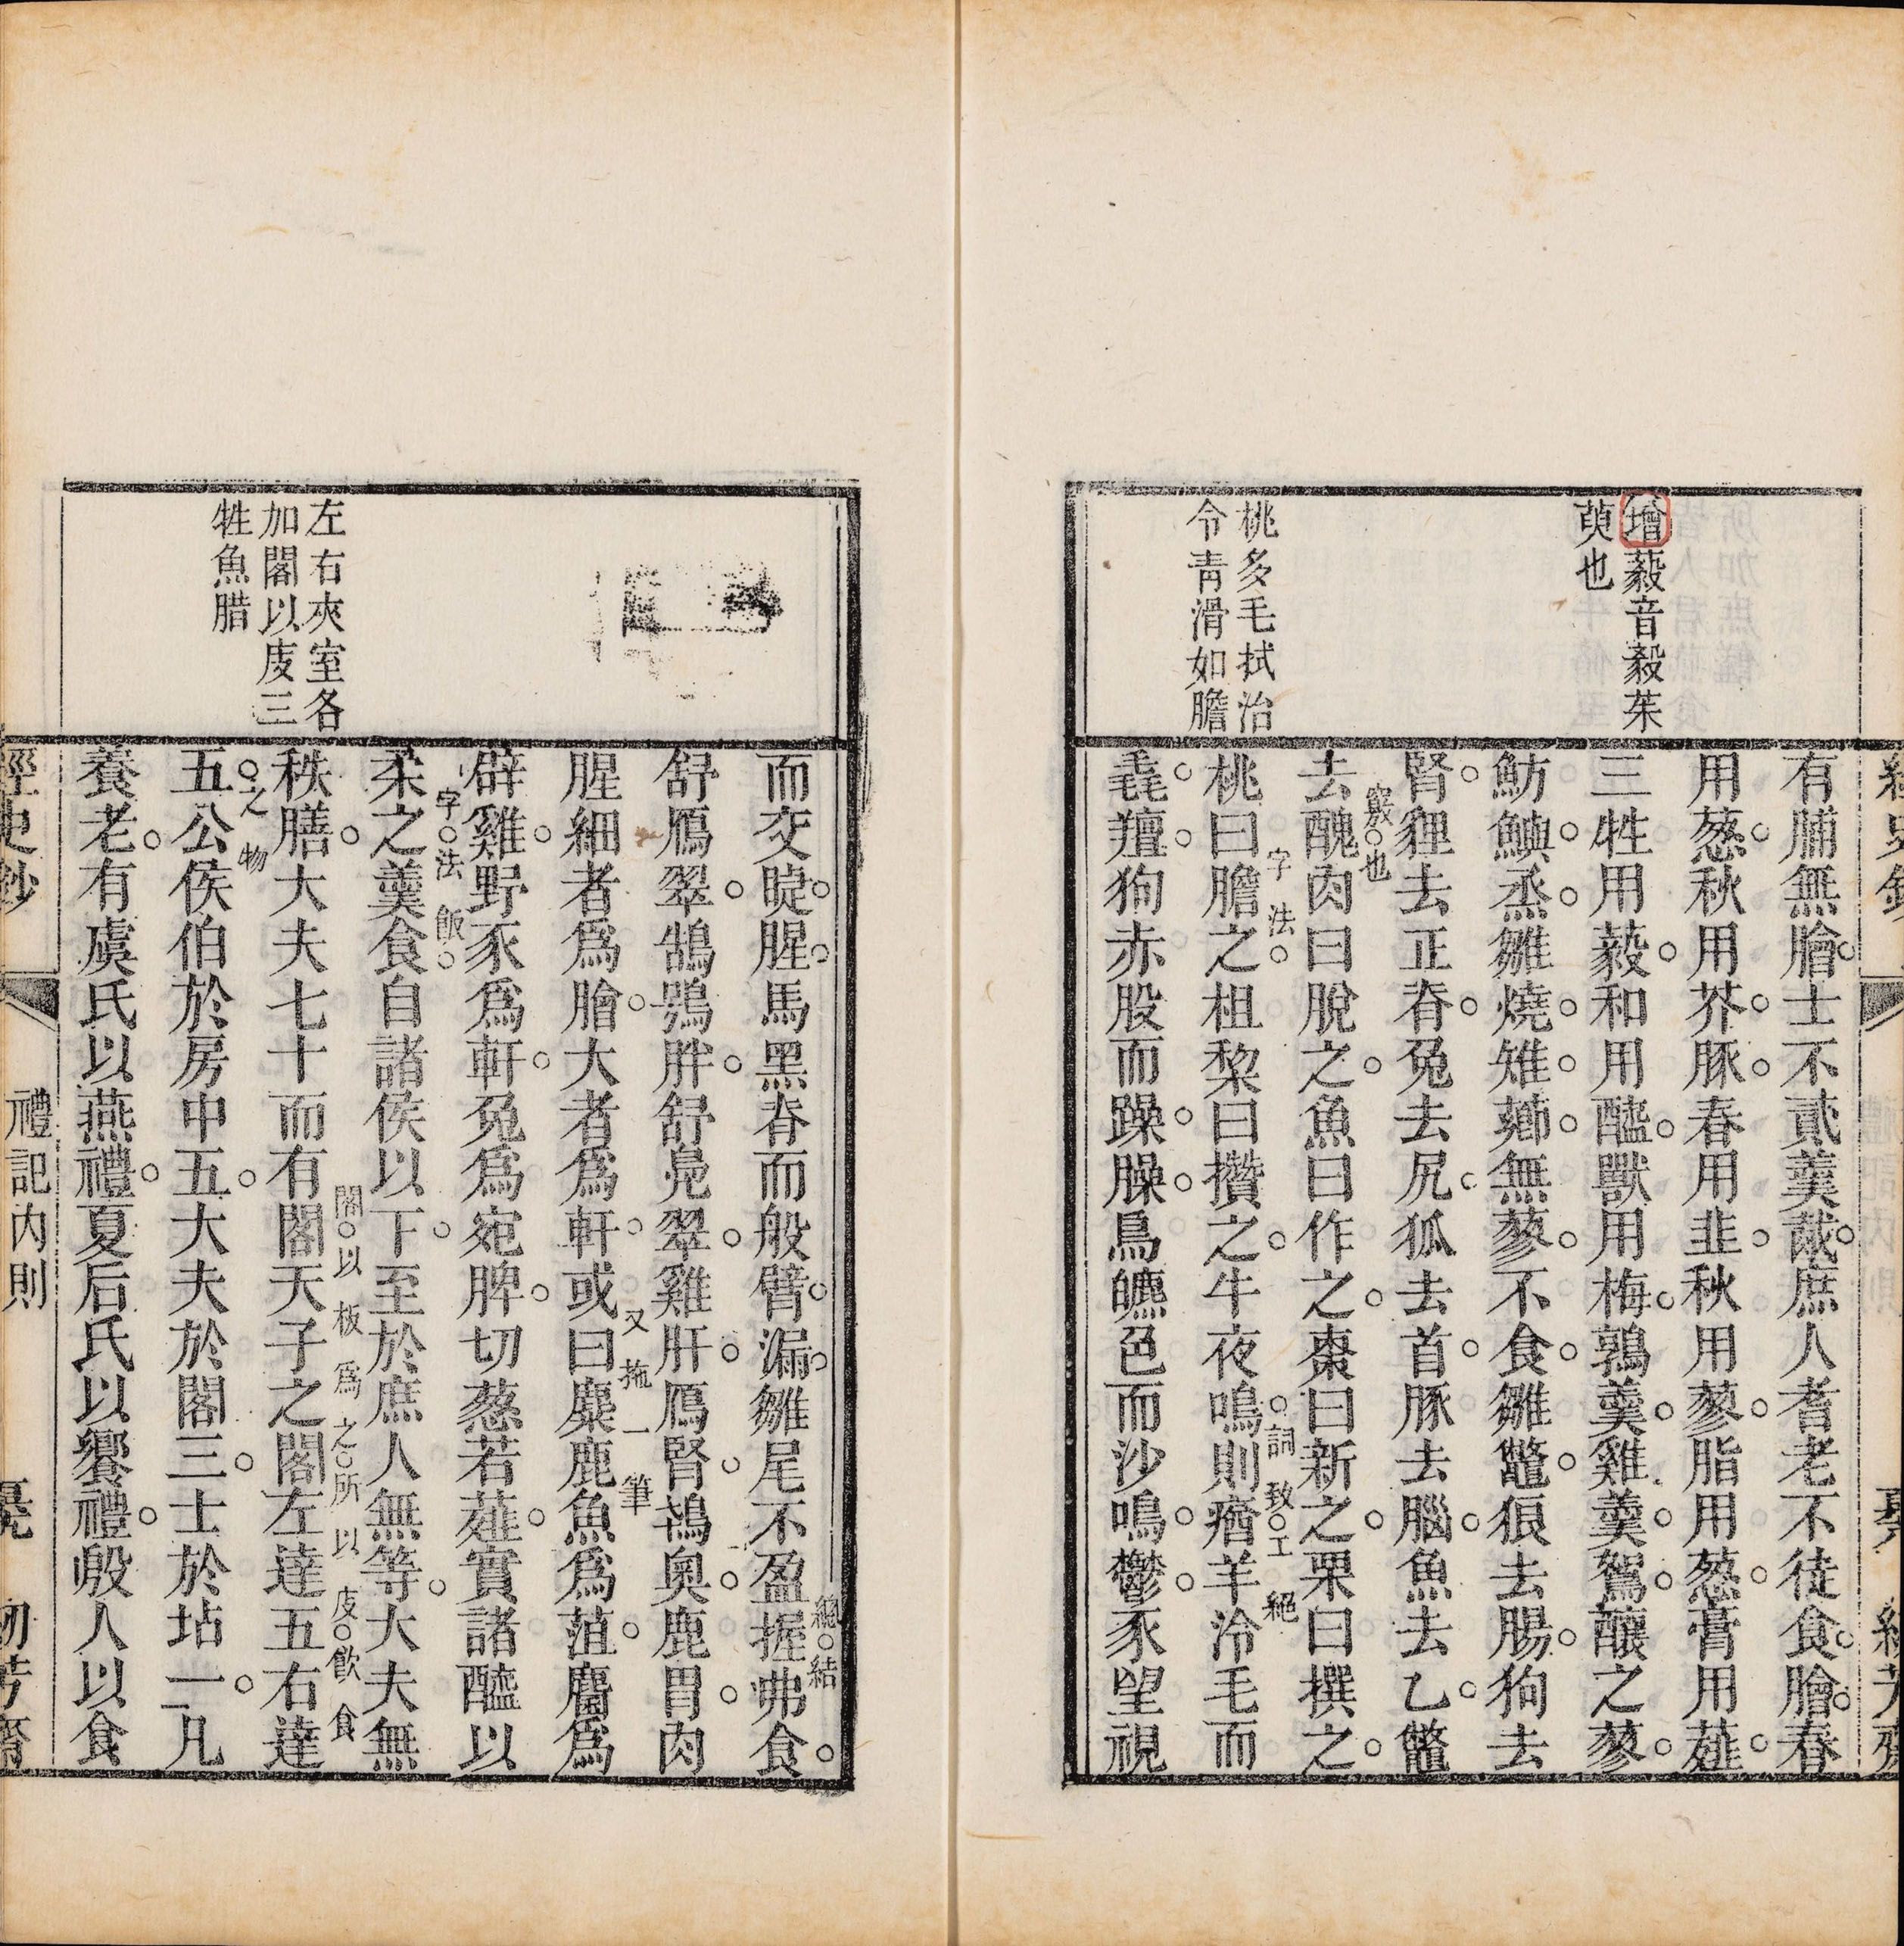 增藙音毅茱
萸也
桃多毛拭治
令青滑如膽
有脯無膾士不貳羹胾庶人耆老不徒食膾春
用葱秋用芥豚春用韭秋用蓼脂用葱膏用薤
三牲用藙和用醯獸用梅鶉羹雞羹鴽釀之蓼
魴鱮烝雛燒雉薌無蓼不食雛鼈狼去腸狗去
腎貍去正脊兔去尻狐去首豚去腦魚去乙鼈
竅也
去醜肉曰脫之魚曰作之棗曰新之栗曰撰之
字法
詞致工絕
桃曰膽之柤棃曰攢之牛夜鳴則㾞羊泠毛而
毳羶狗赤股而躁臊鳥皫色而沙鳴鬱豕望視
左右夾室各
加閣以庋三
牲魚腊
總結
而交睫腥馬黑脊而般臂漏雛尾不盈握弗食
舒鴈翠鵠鴞胖舒鳧翠雞肝鴈腎鴇奧鹿胃肉
又拖一筆
腥細者爲膾大者爲軒或曰麋鹿魚爲菹麕爲
辟雞野豕爲軒兔爲宛脾切葱若薤實諸醯以
字法飯
柔之羹食自諸侯以下至於庶人無等大夫無
閣以板爲之所以庋飲食
秩膳大夫七十而有閣天子之閣左達五右達
之物
五公侯伯於房中五大夫於閣三士於坫一凡
養老有虞氏以燕禮夏后氏以饗禮殷人以食
禮記內則